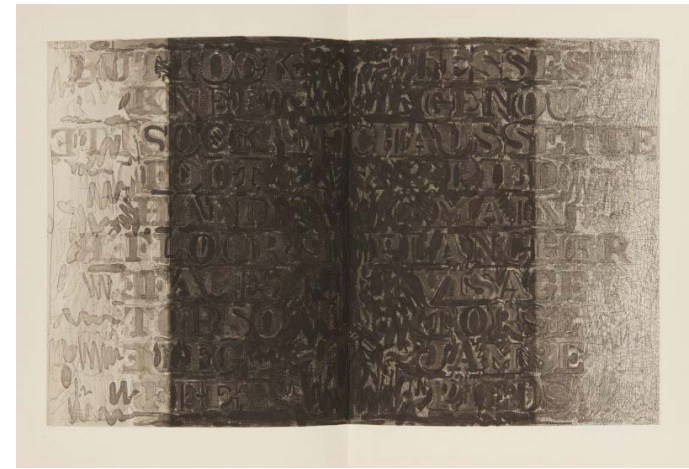 BUTTOCK FESSES
KNEE GENOU
SOCK CHAUSSETTE
FOOT PIED
HAND MAIN
FLOOR PLANCHER
FACE VISAGE
TORSO TORSE
LEG JAMBE
FEET PIEDS